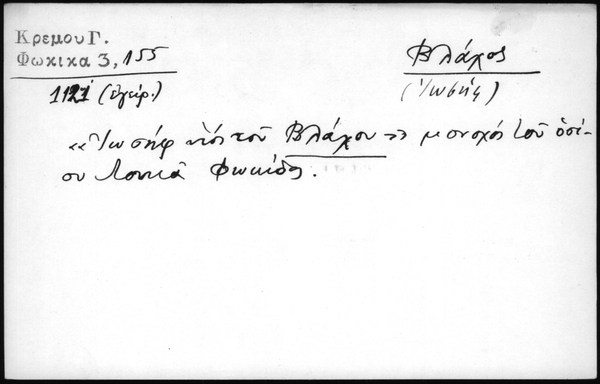 Κρεμου Γ.
Φωκικα 3, 155
Βλάχος
1121 (ἔγγρ.)
(Ἰωσήφ)
«Ἰωσήφ υἱός τοῦ Βλάχου» μοναχός τοῦ ὁσί-
ου Λουκᾶ Φωκίδος.